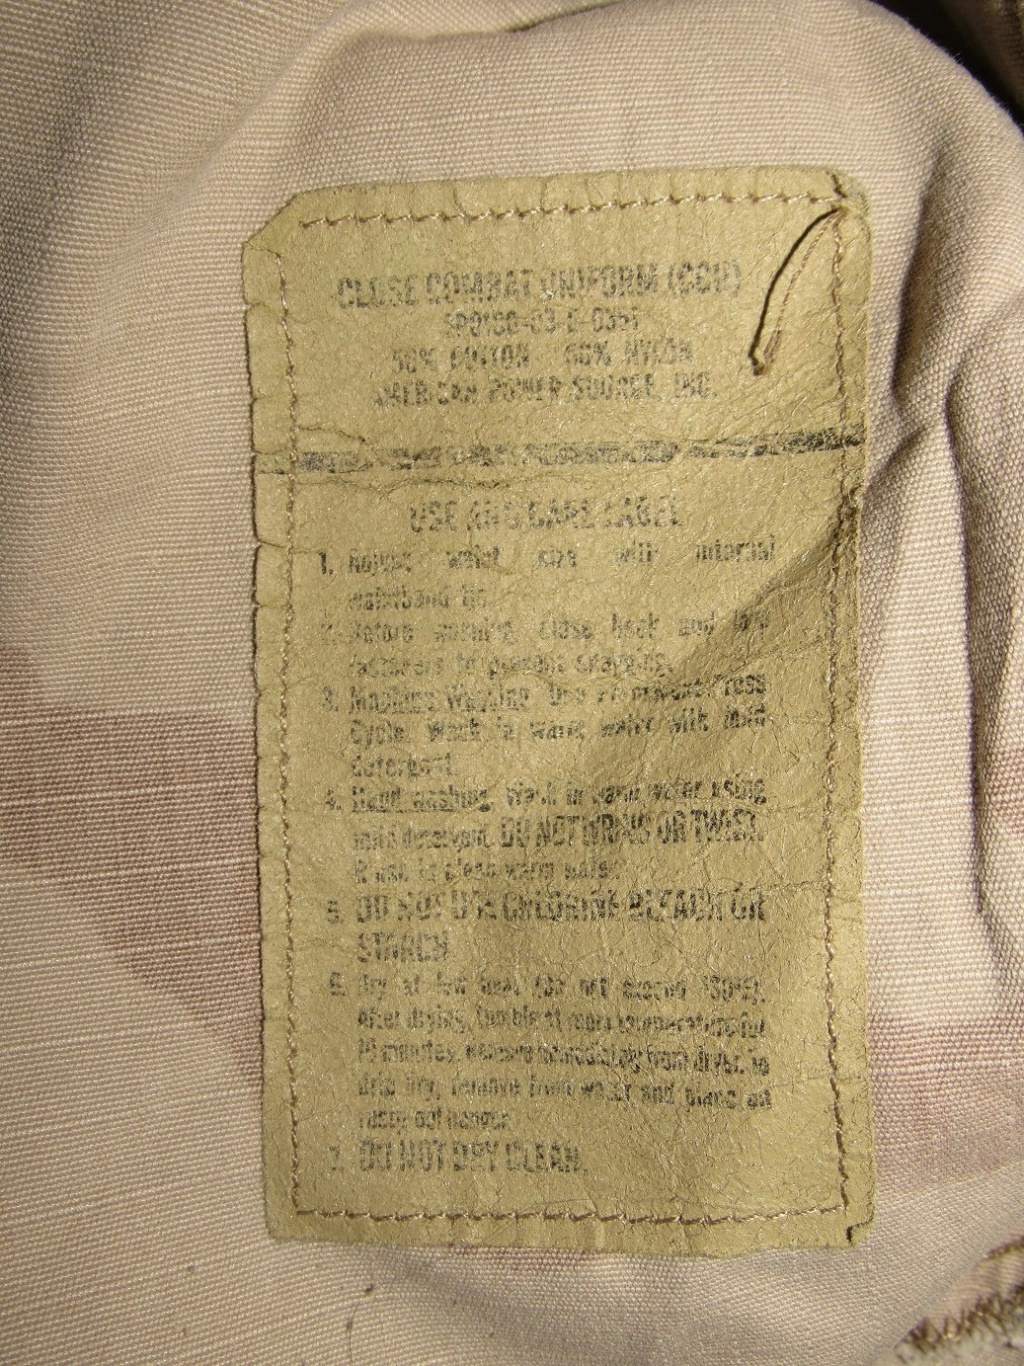 CLOSE COMBAT UNIFORM (CCU)
50% COTTON 50% NYLON
AMERICAN POWER SOURCE, INC.
USE AND CARE LABEL
1. Adjust waist size with internal
waistband tie.
2. Before washing, close hook and loop
fasteners to prevent snagging.
3. Machine Washing. Use Permanent Press
Cycle. Wash in warm water with mild
detergent.
4. Hand washing. Wash in warm water using
mild detergent. DO NOT WRING OR TWIST.
Rinse in clean warm water.
5. DO NOT USE CHLORINE BLEACH OR
STARCH.
6. Dry at low heat (Do not exceed
After drying, tumble at room temperature for
10 minutes, remove immediately from dryer. To
drip dry, remove from water and place on
rust-proof hanger.
7. DO NOT DRY CLEAN.